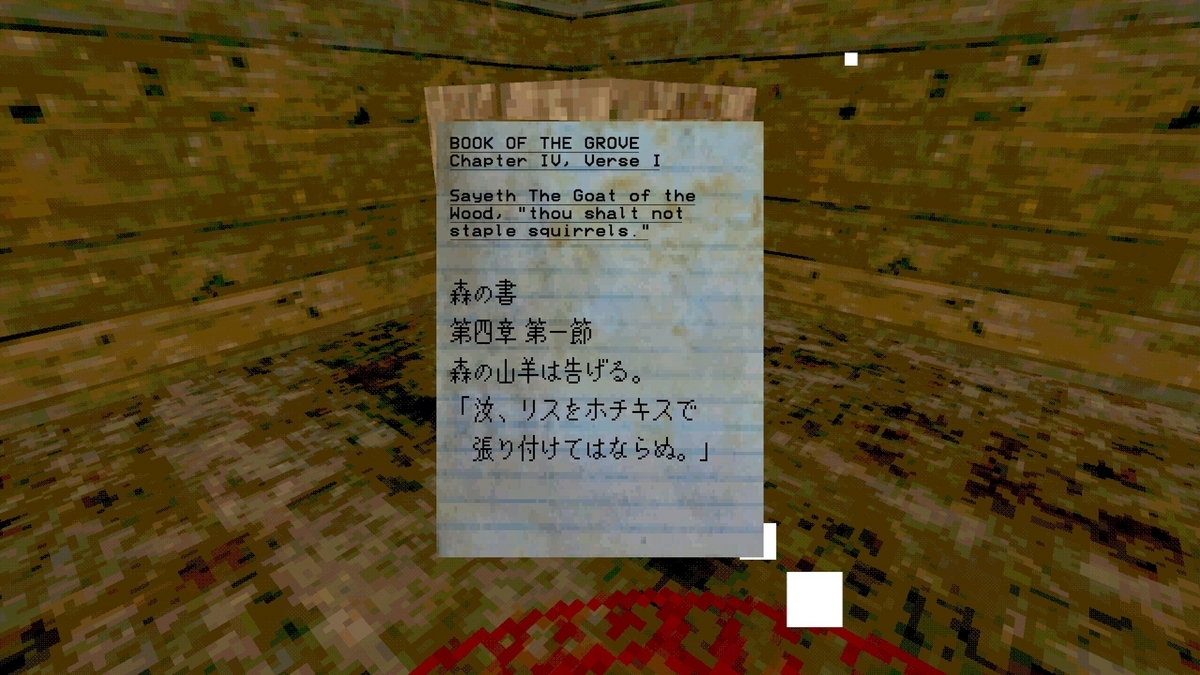 BOOK OF THE GROVE
Chapter IV, Verse I
Sayeth The Goat of the
Wood, "thou shalt not
staple squirrels."
森の書
第四章 第一節
森の山羊は告げる。
「汝、リスをホチキスで
張り付けてはならぬ。」